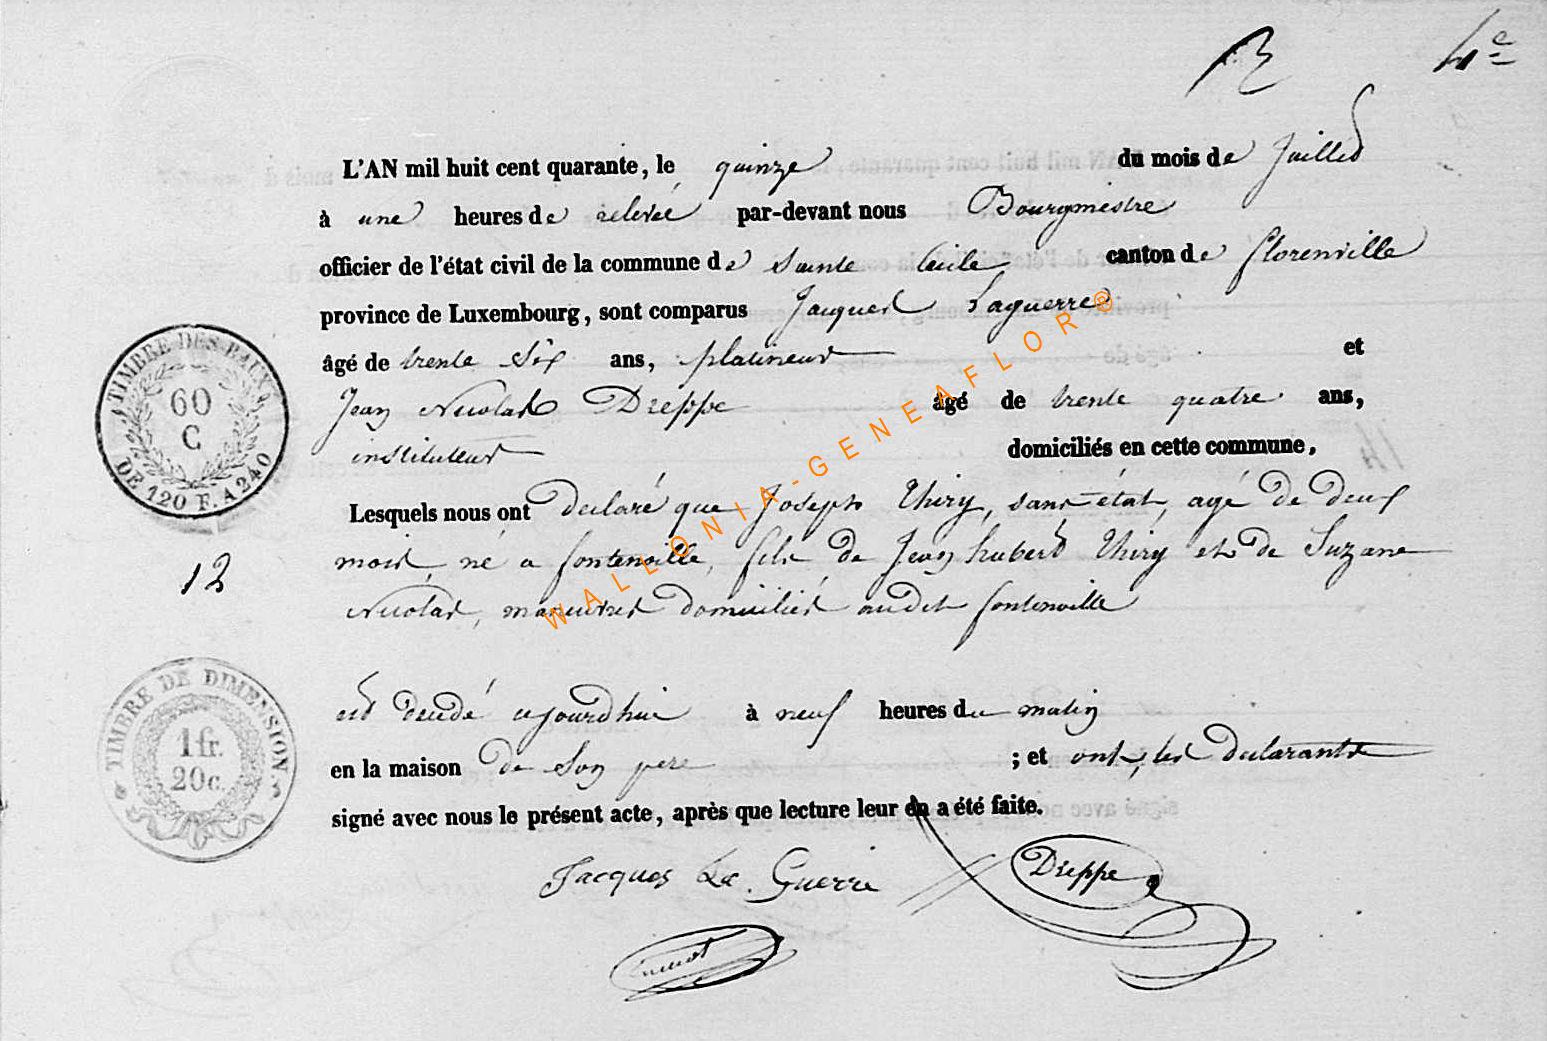 4e
L'AN mil huit cent quarante, le quinze du mois de Juillet
à une heures de relevée par-devant nous Bourgmestre
officier de l'état civil de la commune de Sainte Cécile canton de florenville
province de Luxembourg, sont comparus Jacques Laguerre
âgé de trente Six ans, platineur et
Jean Nicolas Dreppe âgé de trente quatre ans,
instituteur domiciliés en cette commune,
Lesquels nous ont declaré que Joseph Thiry, sans état, agé de deux
mois, né a fontenoille, fils de Jean hubert Thiry et de Suzane
Nicolas, manuvres domiciliés audit fontenoille
est decedé ajourdhui à neuf heures du matin
en la maison de Son pere ; et ont, les declarants
signé avec nous le présent acte, après que lecture leur en a été faite.
Jacques La Guerre Dreppe
TIMBRE DES BAUX
60
C
DE 120 F. A 240
12
TIMBRE DE DIMENSION.
1 fr.
20 c.
WALLONIA-GENEAFLOR ®